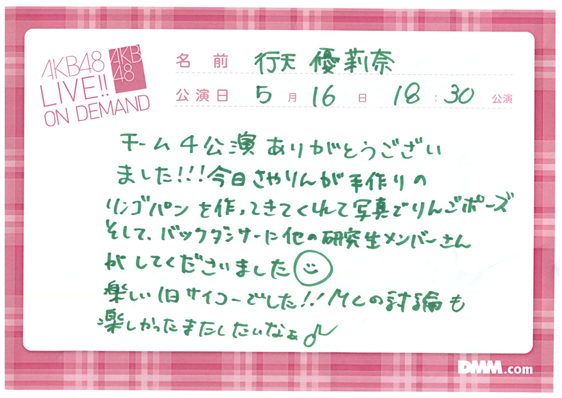 AKB48
LIVE!!
ON DEMAND
AKB
48
名前 行天 優莉奈
公演日 5月16日 18:30 公演
チーム4公演ありがとうござい
ました!!!今日さやりんが手作りの
リンゴパンを作ってきてくれて写真でりんごポーズ
そして、バックダンサーに他の研究生メンバーさん
がしてくださいました☺
楽しい1日サイコーでした!! MCの討論も
楽しかったまたしたいなぁ♪
DMM.com